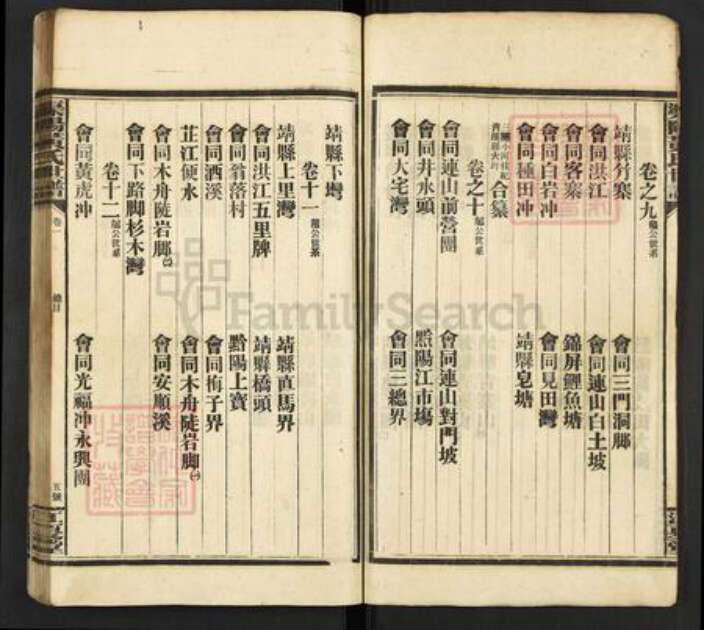 卷之九
靖縣竹寨
會同三門洞腳
會同洪江
會同連山白土坡
會同客寨
錦屏鯉魚塘
會同白岩冲
會同見田灣
會同種田冲
靖縣皂塘
合纂
卷之十
會同連山前營團
會同連山對門坡
會同井水頭
黔陽江市塲
會同大宅灣
會同三總界
靖縣下塆
卷十一
靖縣上里灣
靖縣直馬界
會同洪江五里牌
靖縣橋頭
會同翁落村
黔陽上寶
會同酒溪
會同栴子界
芷江便水
會同木舟陡岩腳㈠
會同木舟陡岩腳㈡
會同安順溪
會同下路脚杉木灣
卷十二
會同黃虎冲
會同光福冲永興團
卷一
總目
五號
江夏堂
FamilySearch